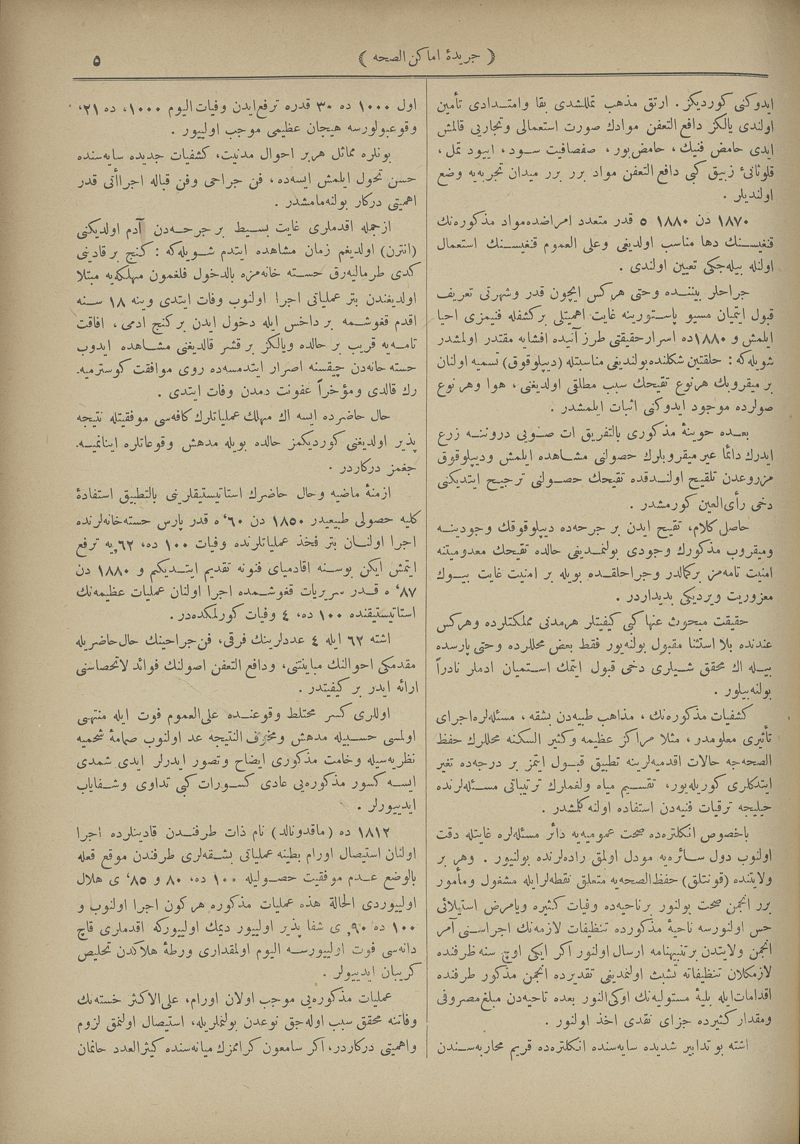 ﴿ جریدۀ اماکن الصحه ﴾
٥
ایدوکنی کوردیکز . ارتق مذهب تمللشدی بقا وامتدادی تأمین
اولندی یالکز دافع التعفن موادك صورت استعمالی وتجاربی قالمش
ایدی حامض فنیك ، حامض بور ، صفصافیت سود ، ایبود تمل ،
قلوئانیء زیبق کبی دافع التعفن مواد برر برر میدان تجربه‌یه وضع
اولندیلر .
١٨٧٠ دن ١٨٨٠ ٥ قدر متعدد امراضده مواد مذکوره‌نك
قنغیسنك دها مناسب اولدیغی وعلی العموم قنغیسنك استعمال
اولنه بیله‌جکی تعیین اولندی .
جراحلر بیننده وحتی هرکس ایچون قدر وشهرتی تعریف
قبول ایتمیان مسیو پاستورینه غایت اهمیتلی برکشفله فنیمزی احیا
ایلمش و ١٨٨٠ده اسرار حقیقی طرز آتیده افشایه مقتدر اولمشدر
شویله‌که : حلقتین شکلنده بولندیغی مناسبتله (دیپلوقوق) تسمیه اولنان
بر میقروبك هر نوع تقیحك سبب مطلقی اولدیغی ، هوا وهر نوع
صولرده موجود ایدوکنی اثبات ایلمشدر .
بعده حوینۀ مذکوری بالتفریق ات صویی دروننه زرع
ایدرك دائما عیر میقروبلرك حصولنی مشاهده ایلمش ودیپلوقوق
مزروعدن تلقیح اولندقده تقیحك حصولنی ترجیح ایتدیکنی
دخی رأی العین کورمشدر .
حاصل کلام، تقیح ایدن بر جرحه‌ده دیپلوقوقك وجودینه
ومیقروب مذکورك وجودی بولنمدیغی حالده تقیحك معدومیتنه
امنیت تامه‌مز برکمالدر وجراحلقده بویله بر امنیت غایت بیوك
معزوریت ویردیکی بدیداردر .
حقیقت مبحوث عنها کبی کیفیتلر هرمدنی مملکتلرده وهرکس
عندنده بلا استثنا مقبول بولنه‌یور فقط بعض محللرده وحتی پارسده
بیله اك محقق شیلری دخی قبول ایتمك استمیان ادملر نادراً
بولنه‌بیلور .
کشفیات مذکوره‌نك ، مذاهب طبیه‌دن بشقه ، مسئله‌لره اجرای
تأثیری معلومدر، مثلا مراکز عظیمه وکثیر السکنه محللرك حفظ
الصحه‌جه حالات اقدمه‌لرینه تطبیق قبول ایتمز بر درجه‌ده تغیر
ایتدکلری کوریله‌یور، تقسیم میاه ولغملرك ترتیباتی مسئله‌لرنده
خیلیجه ترقیات فنیه‌دن استفاده اولنه کلمشدر .
باخصوص انکلتره‌ده صحت عمومیه‌یه دائر مسئله‌لره غایتله دقت
اولنوب دول سائره‌یه مودل اولمق راده‌لرنده بولنیور . وهر بر
ولایتنده (قونتلق) حفظ الصحه‌یه متعلق نقطه‌لر ایله مشغول ومأمور
برر انجمن صحت بولنور بر ناحیه‌ده وفیات کثیره ویا مرض استیلائی
حس اولنورسه ناحیۀ مذکورده تنظیفات لازمه‌نك اجراسنی آمر
انجمن ولایتدن بر تنبیهنامه ارسال اولنور اکر ایکی اوچ سنه ظرفنده
لازمکلان تنظیفاته تشبث اولنمدیغی تقدیرده انجمن مذکور طرفنده
اقدامات ایله بلیۀ مستولیه‌نك اوکی النور بعده ناحیه‌دن مبلغ مصروفی
ومقدار کثیرده جزای نقدی اخذ اولنور .
اشته بو تدابیر شدیده سایه‌سنده انکلتره‌ده قریم محاربه‌سندن
اول ١٠٠٠ ده ٣٠ قدره ترفع ایدن وفیات الیوم ١٠٠٠، ده ٢١،
وقوعبولورسه هیجان عظیمی موجب اولییور .
بونلره مماثل هر بر احوال مدنیت، کشفیات جدیده سایه‌سنده
حسن تحول ایلمش ایسه‌ده ، فن جراحی وفن قباله اجراأتی قدر
اهمیتی درکار بولنه‌مامشدر .
ازجمله اقدملری غایت بسیط بر جرحه‌دن آدم اولدیکنی
(انترن) اولدیغم زمان مشاهده ایتدم شویله‌که : کنج بر قادینی
کدی طرمالیه‌رق خسته خانه‌مزه بالدخول فلغمون مهلکه‌یه مبتلا
اولدیغندن بتر عملیاتی اجرا اولنوب وفات ایتدی وینه ١٨ سنه
اقدم قغوشمه بر داخس ایله دخول ایدن بر کنج ادمی ، افاقت
تامه‌یه قریب بر حالده ویالکز بر قشر قالدیغنی مشاهده ایدوب
خسته خانه‌دن چیقسنه اصرار ایتدمسه‌ده روی موافقت کوسترمیه.
رك قالدی ومؤخراً عفونت دمدن وفات ایتدی .
حال حاضرده ایسه اك مهلك عملیاتلرك کافه‌سی موفقیتله نتیجه
پذیر اولدیغنی کوردیکمز حالده بویله مدهش وقوعاتلره اینانمیه.
جغمز درکاردر .
ازمنۀ ماضیه وحال حاضرك استاتیستیقلرینی بالتطبیق استفادۀ
کلیه حصولی طبیعیدر ١٨٥٠ دن ٦٠، ه قدر پارس خسته‌خانه‌لرنده
اجرا اولنان بتر فخذ عملیاتلرنده وفیات ١٠٠ ده، ٦٢،یه ترفع
ایتمش ایکن بوسنه اقادمیای فنونه تقدیم ایتدیکم و ١٨٨٠ دن
٨٧، ه قدر سریریات قغوشمده اجرا اولنان عملیات عظیمه‌نك
استاتیستیقنده ١٠٠ ده، ٤ وفیات کورلمکده‌در .
اشته ٦٢ ایله ٤ عددلرینك فرقی، فن جراحینك حال حاضریله
مقدمکی احوالنك مباینتی، ودافع التعفن اصولنك فوائد لاتحصاسنی
ارائه ایدر بر کیفیتدر .
اوللری کسر مختلط وقوعنده علی العموم فوت ایله منتهی
اولمسی حسبیله مدهش ومخوف النتیجه عد اولنوب صمامۀ شحمیه
نظریه‌سیله وخامت مذکوری ایضاح وتصور ایدرلر ایدی شمدی
ایسه کسور مذکوره‌یی عادی کسورات کبی تداوی وشفایاب
ایدییورلر .
١٨١٢ ده (ماقدونالد) نام ذات طرفندن قادینلرده اجرا
اولنان استیصال اورام بطنیه عملیاتی بشقه‌لری طرفندن موقع فعله
بالوضع عدم موفقیت حصولیله ١٠٠ ده، ٨٠ و ٨٥، ی هلال
اولییوردی الحالة هذه عملیات مذکوره هرکون اجرا اولنوب و
١٠٠ ده ٩٠, ی شفا پذیر اولییور دیمك اولییورکه اقدملری قاچ
دانه‌سی فوت اولییورسه الیوم اولمقداری ورطۀ هلاکدن تخلیص
کریبان ایدییولر .
عملیات مذکوره‌یی موجب اولان اورام، علی الاکثر خسته‌نك
وفاتنه محقق سبب اوله‌جق نوعدن بولنملریله، استیصال اولنمق لزوم
واهمیتی درکاردر، اکر سامعون کرامزك میانه‌سنده کثیر العدد خانمان